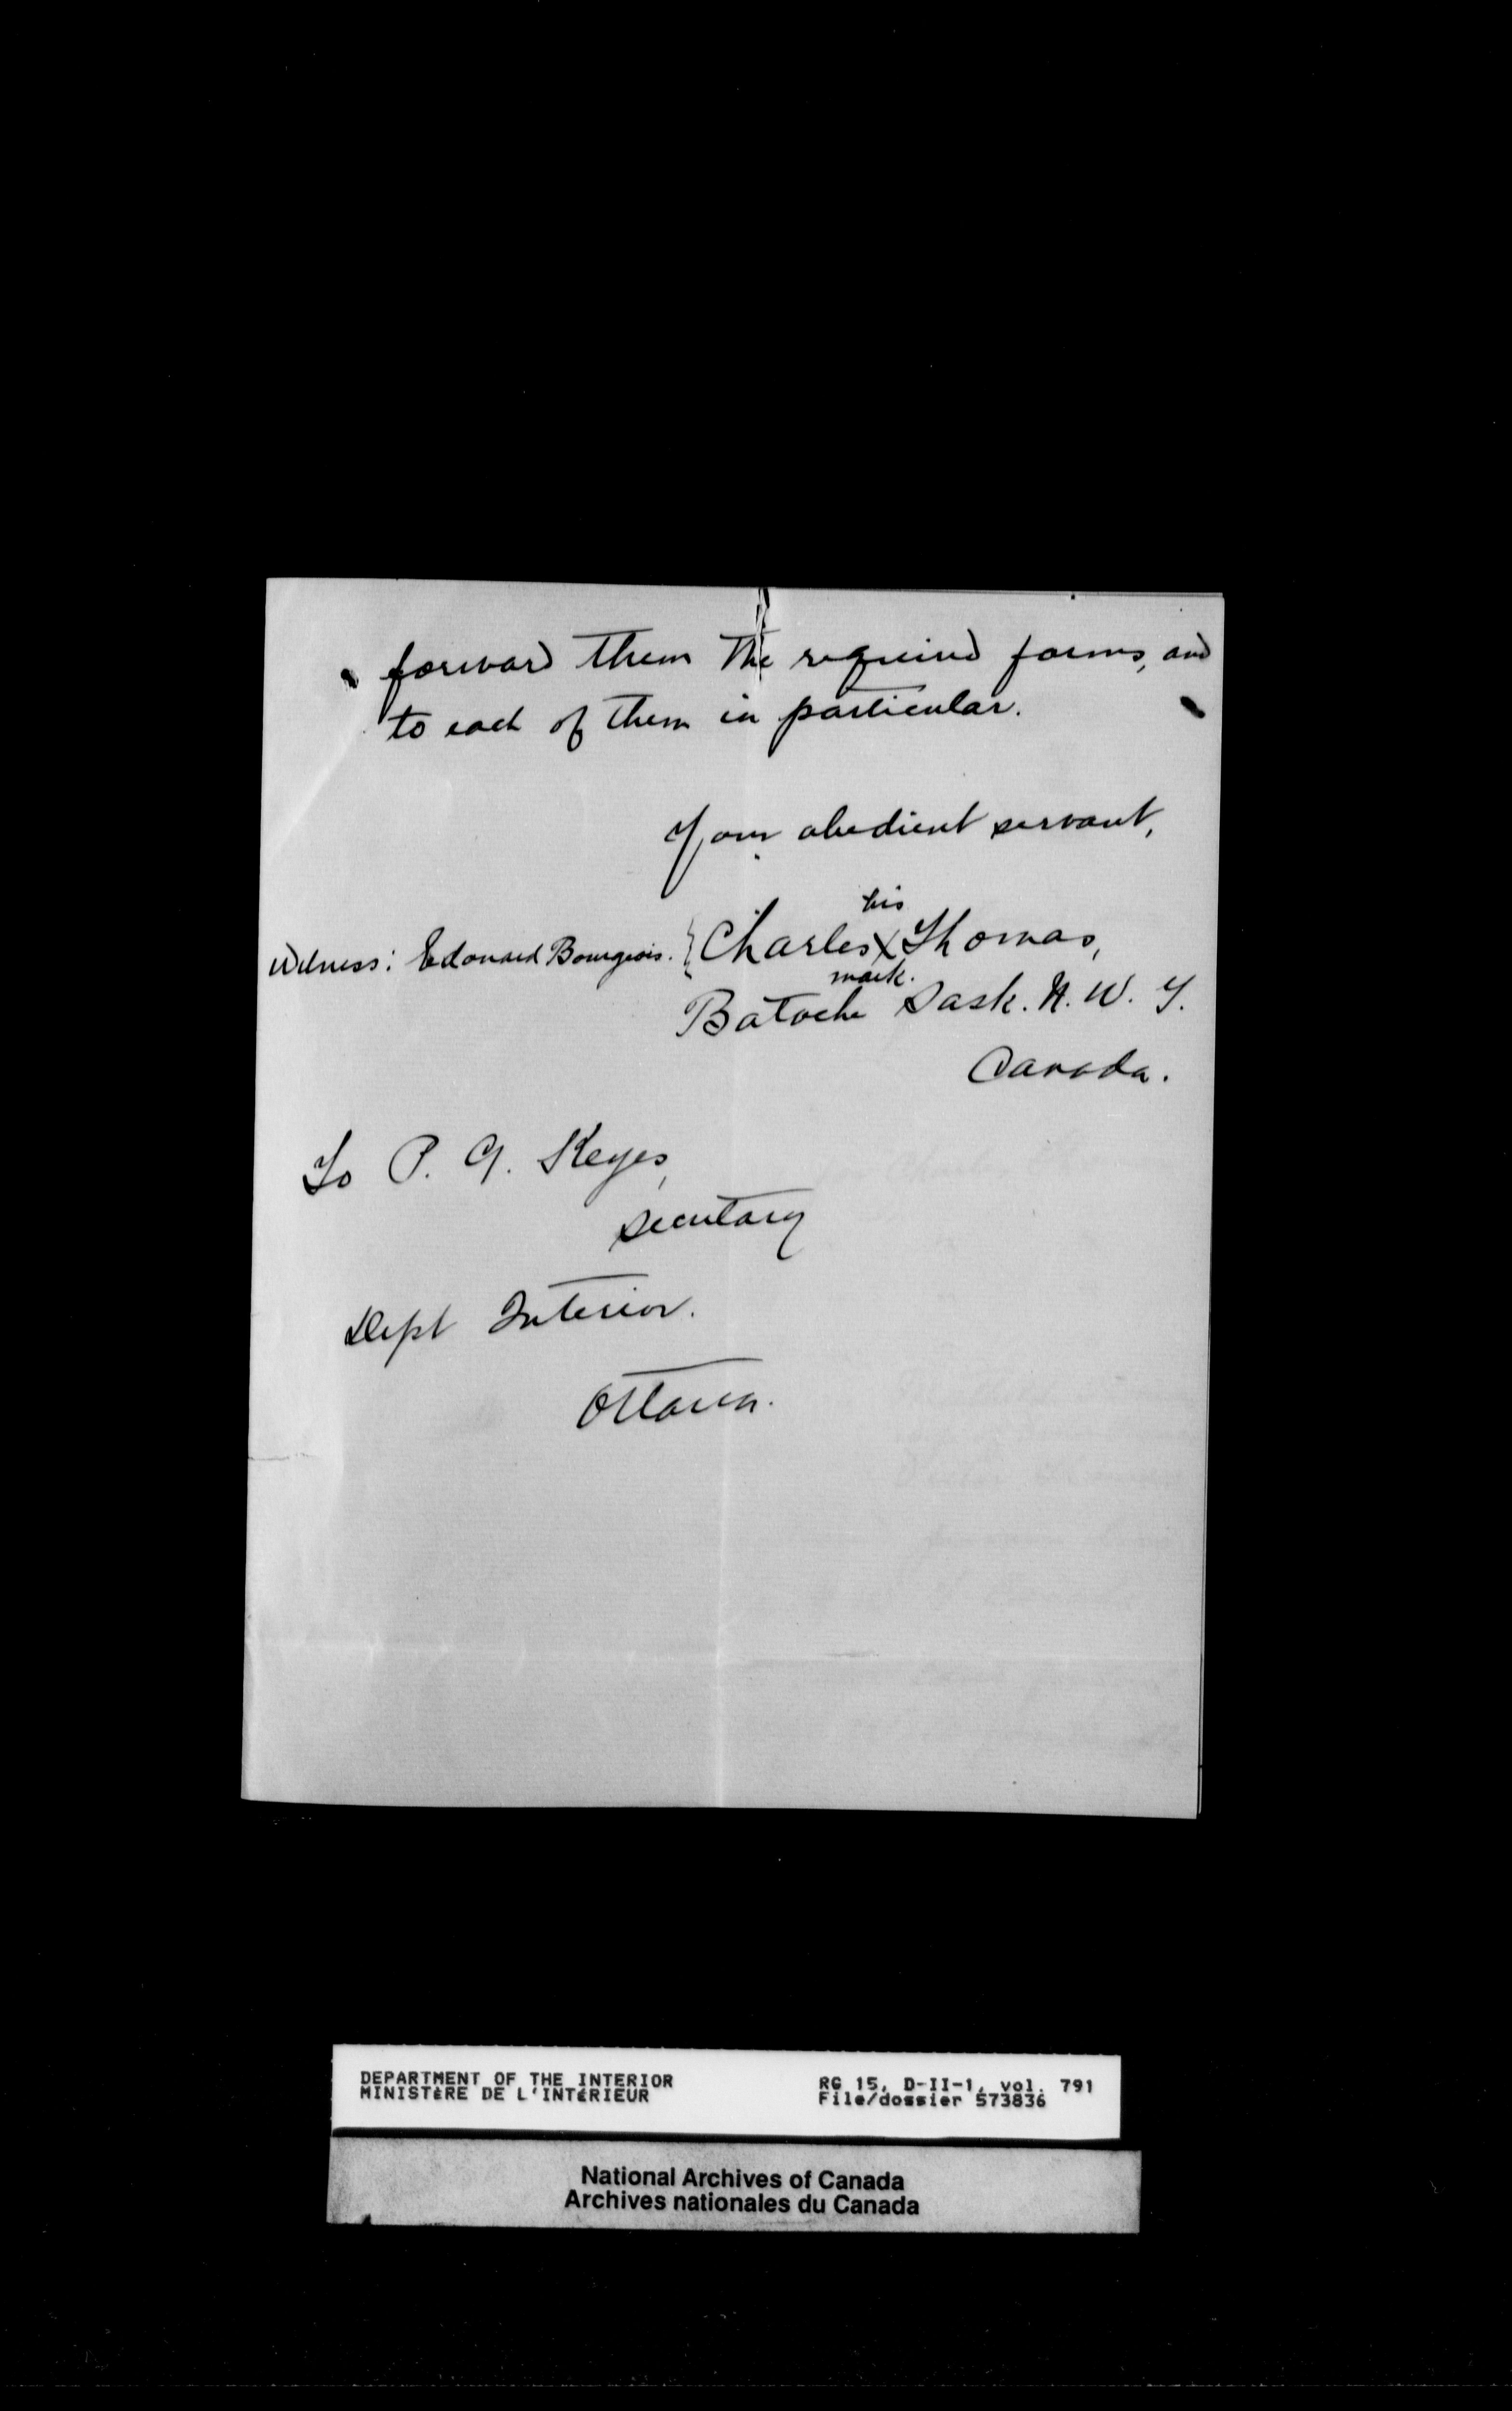 forward them the required forms, and
to each of them in particular.
Your obedient servant,
his
Witness: Edouard Bourgeois. { Charles X Thomas,
mark.
Batoche Sask. N. W. T.
Canada.
To P. G. Keyes,
secretary
Dept Interior.
Ottawa.
DEPARTMENT OF THE INTERIOR
MINISTÈRE DE L'INTÉRIEUR
RG 15, D-II-1, vol. 791
File/dossier 573836
National Archives of Canada
Archives nationales du Canada